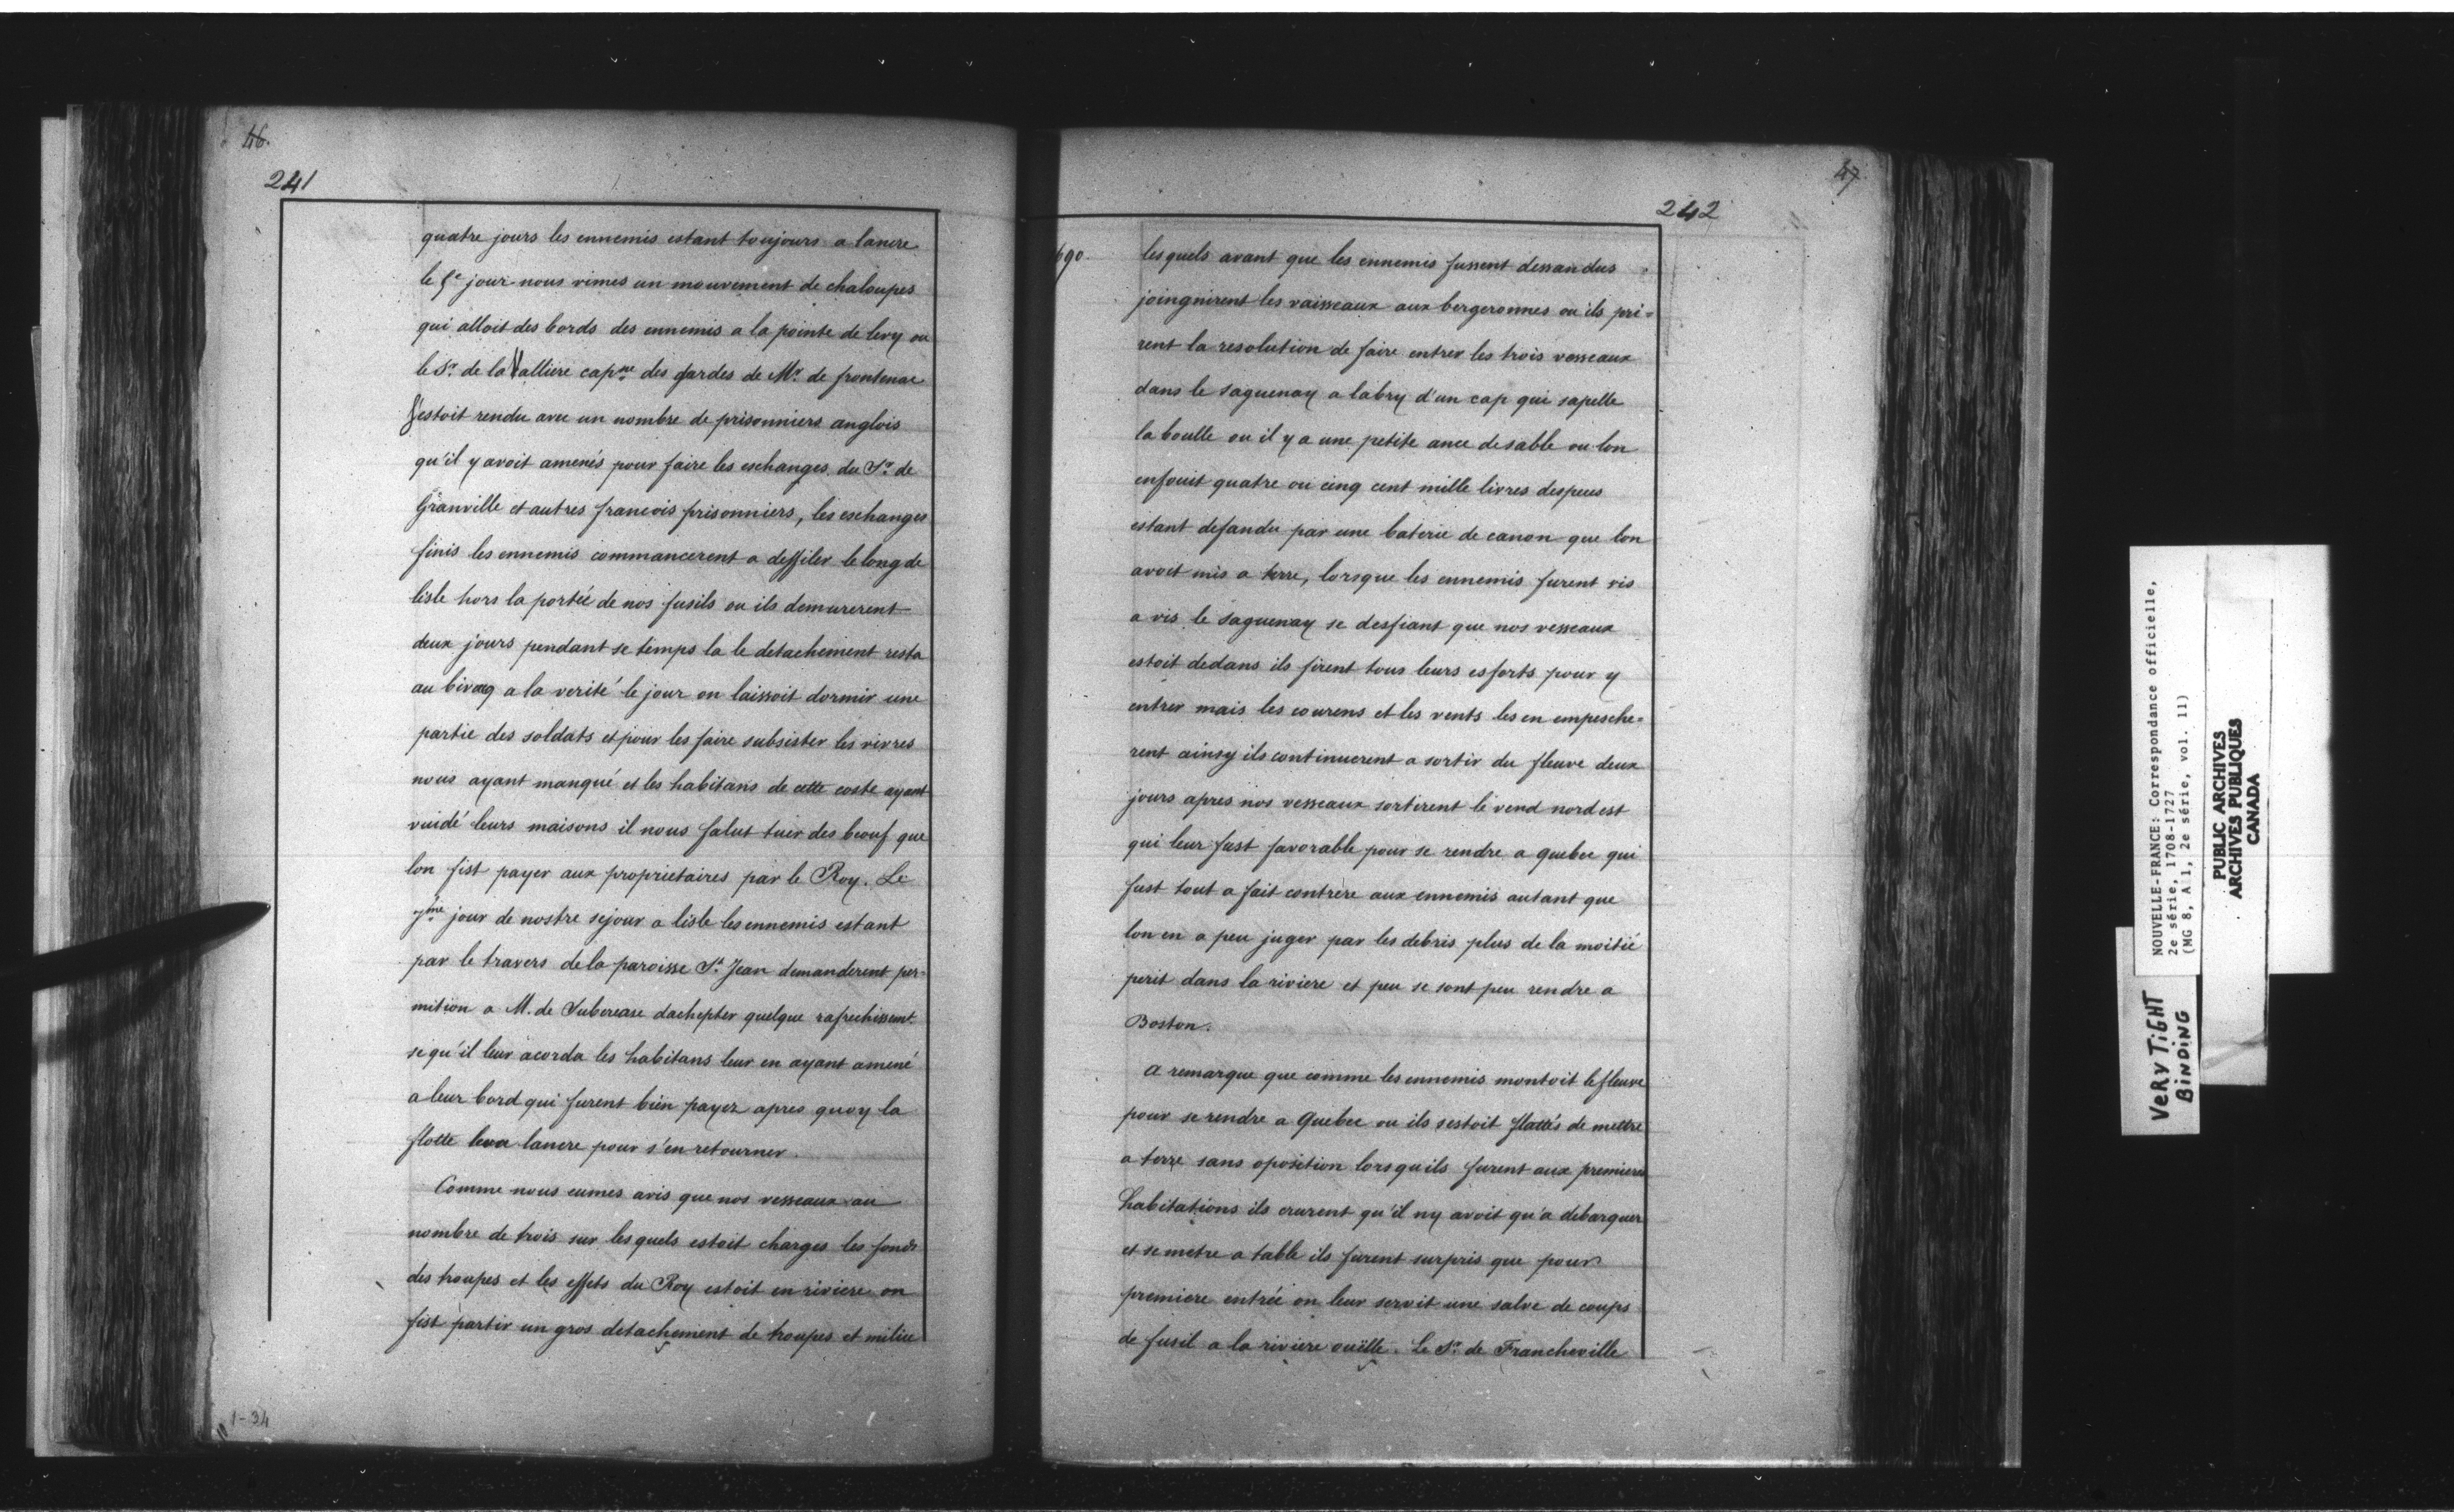 46.
241
quatre jours les ennemis estant toujours a lancre
le 5e jour nous vimes un mouvement de chaloupes
qui alloit des bords des ennemis a la pointe de levy ou
le Sr. de la Valliere capne des gardes de Mr. de frontenac
s'estoit rendu avec un nombre de prisonniers anglois
qu'il y avoit amenés pour faire les eschanges du Sr. de
Granville et autres francois prisonniers, les eschanges
finis les ennemis commancerent a deffiler le long de
lisle hors la portée de nos fusils ou ils demurerent
deux jours pendant se temps la le detachement resta
au bivacq a la verité le jour on laissoit dormir une
partie des soldats et pour les faire subsister les vivres
nous ayant manqué et les habitans de cette coste ayant
vuidé leurs maisons il nous falut tuer des beouf que
lon fist payer aux proprietaires par le Roy. Le
7me jour de nostre sejour a lisle les ennemis estant
par le travers de la paroisse St. Jean demanderent per-
mition a M. de Subercase dachepter quelque rafrechissemt.
se qu'il leur acorda les habitans leur en ayant amené
a leur bord qui furent bien payez apres quoy la
flotte leva lancre pour s'en retourner.
Comme nous eumes avis que nos vesseaux au
nombre de trois sur lesquels estoit charges les fonds
des troupes et les effets du Roy estoit en riviere on
fist partir un gros detachement de troupes et milice
1-34
47
242
690
lesquels avant que les ennemis fussent dessandus
joingnirent les vaisseaux aux bergeronnes ou ils pri-
rent la resolution de faire entrer les trois vesseaux
dans le saguenay a labry d'un cap qui sapelle
la boulle ou il y a une petite ance de sable ou lon
enfouit quatre ou cinq cent mille livres despeces
estant defandu par une baterie de canon que lon
avoit mis a terre, lorsque les ennemis furent vis
a vis le saguenay se desfiant que nos vesseaux
estoit dedans ils firent tous leurs esforts pour y
entrer mais les courens et les vents les en empesche-
rent ainsy ils continuerent a sortir du fleuve deux
jours apres nos vesseaux sortirent le vend nord est
qui leur fust favorable pour se rendre a quebec qui
fust tout a fait contrere aux ennemis autant que
lon en a peu juger par les debris plus de la moitié
perit dans la riviere et peu se sont peu rendre a
Boston.
A remarque que comme les ennemis montoit le fleuve
pour se rendre a Quebec ou ils sestoit flattés de mettre
a terre sans oposition lorsquils furent aux premieres
habitations ils crurent qu'il ny avoit qu'a debarquer
et se metre a table ils furent surpris que pour
premiere entrée on leur servit une salve de coups
de fusil a la riviere ouëlle. Le Sr. de Francheville
NOUVELLE-FRANCE: Correspondance officielle,
2e série, 1708-1727
(MG 8, A 1, 2e série, vol. 11)
PUBLIC ARCHIVES
ARCHIVES PUBLIQUES
CANADA
VERY TIGHT
BINDING